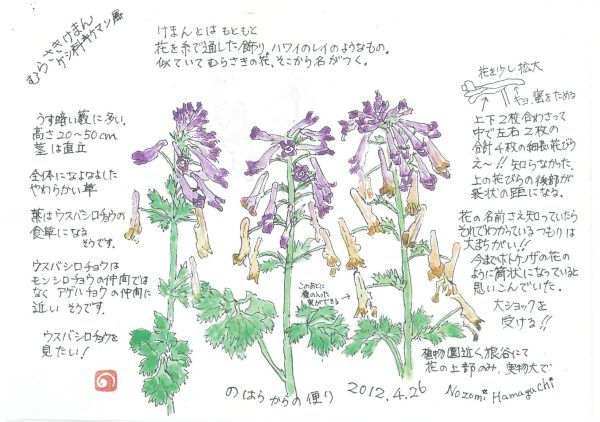 むらさきけまん
ケシ科キケマン属
けまんとは もともと
花を糸で通した飾り。ハワイのレイのようなもの。
似ていてむらさきの花。そこから名がつく。
うす暗い藪に多い。
高さ20〜50cm
茎は直立
全体になよなよした
やわらかい草
葉はウスバシロチョウの
食草になる
そうです。
ウスバシロチョウは
モンシロチョウの仲間では
なく アゲハチョウの仲間に
近い そうです。
ウスバシロチョウを
見たい!
花を少し拡大
キョ、蜜をためる
上下2枚合わさって
中で左右2枚の
合計4枚の細長花びら
え〜!! 知らなかった。
上の花びらの後部が
袋状の距になる。
花の名前さえ知っていたら
それでわかっているつもりは
大まちがい!!
今までホトケノザの花の
ように筒状になっていると
思いこんでいた。
大ショックを
受ける!!
このあとに
種の入った
実ができる
植物園近く狼谷にて
花の上部のみ、実物大で
のはらからの便り
2012.4.26
Nozomi Hamaguchi